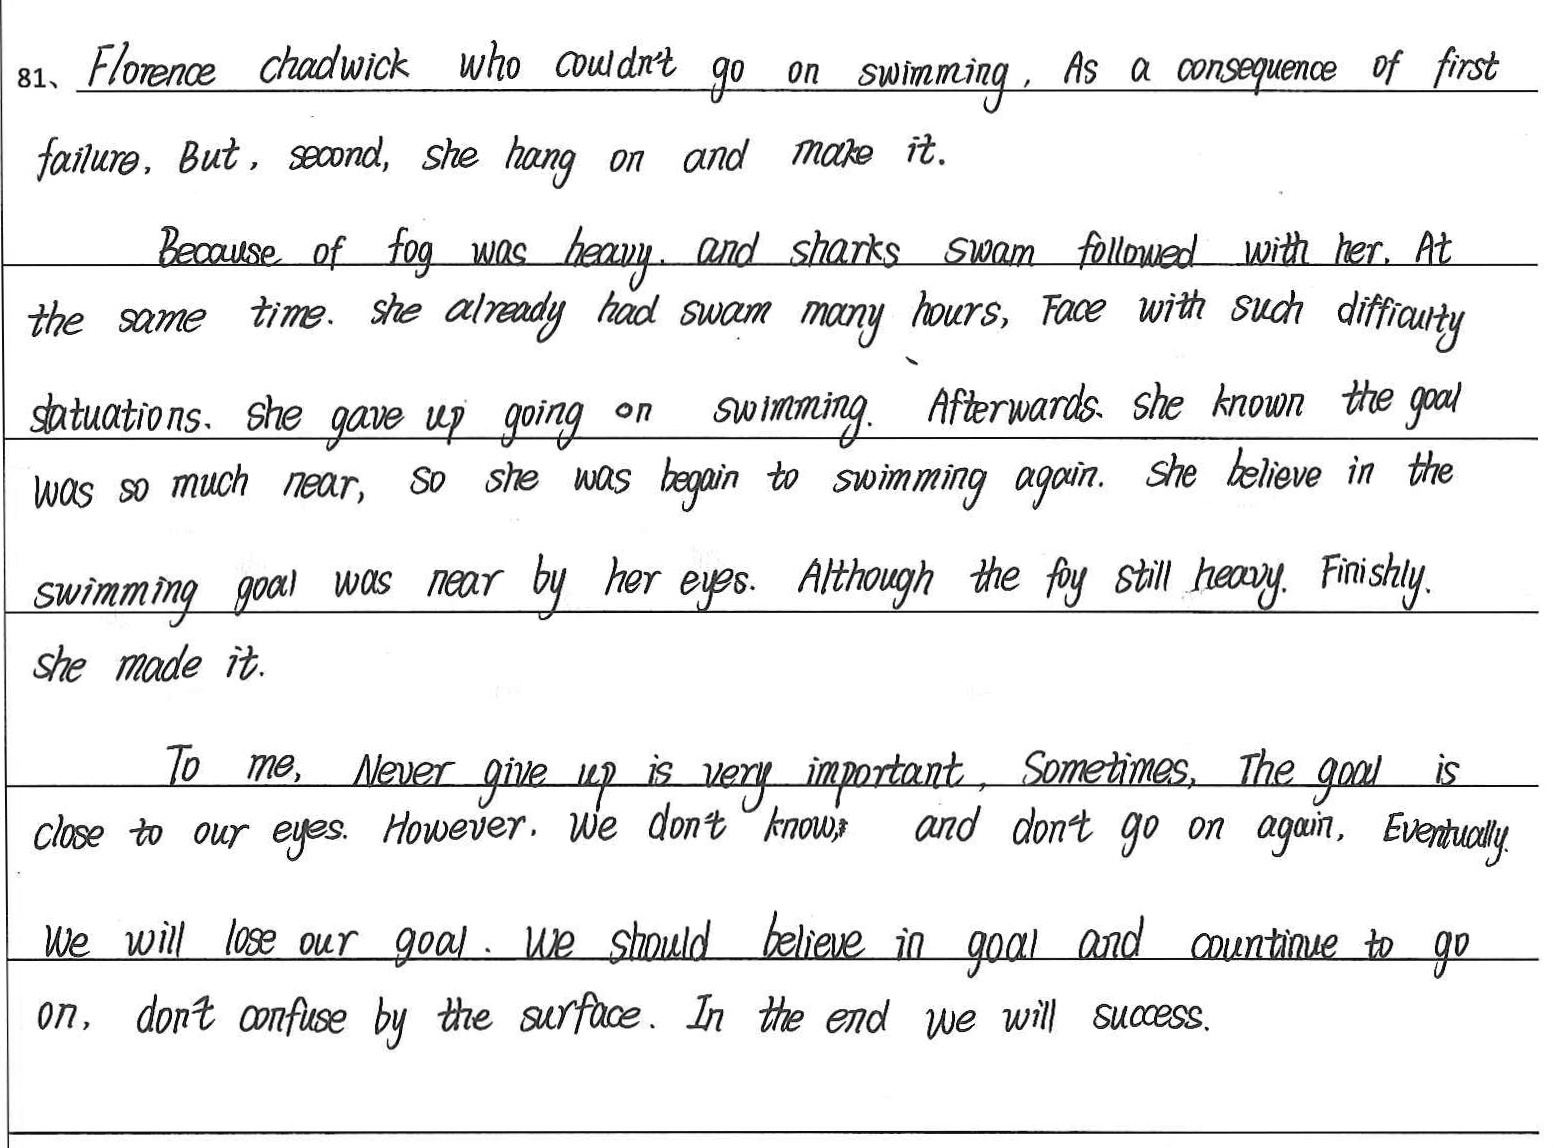 81、Florence chadwick who couldn't go on swimming, As a consequence of first
failure, But, second, she hang on and make it.
Because of fog was heavy. and sharks swam followed with her. At
the same time. she already had swam many hours, Face with such difficulty
statuations. she gave up going on swimming. Afterwards. she known the goal
was so much near, so she was begain to swimming again. she believe in the
swimming goal was near by her eyes. Although the foy still heavy. Finishly.
she made it.
To me, Never give up is very important, Sometimes, The goal is
close to our eyes. However. We don't know, and don't go on again, Eventually.
We will lose our goal. We should believe in goal and countinue to go
on, don't confuse by the surface. In the end we will success.